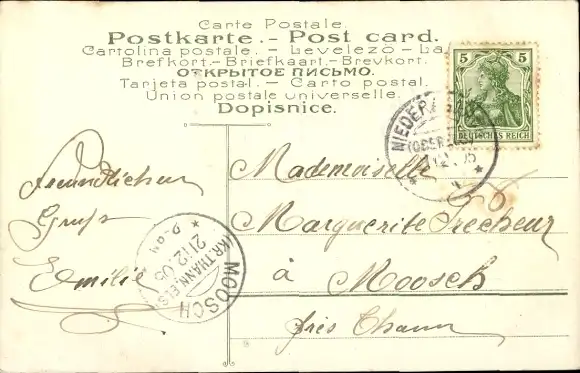 Carte Postale.
Postkarte. - Post card.
Cartolina postale. - Levelező - La
Brefkort. - Briefkaart. - Brevkort.
ОТКРЫТОЕ ПИСЬМО.
Tarjeta postal. - Carto postal.
Union postale universelle.
Dopisnice.
5 5
DEUTSCHES REICH
NIEDER
(OBER
Freundlichen
Gruss
Emilie
Mademoiselle
Marguerite Frecheur
à Moosch
près Thann
MOOSCH
(KR. THANN ELS)
21.12.05